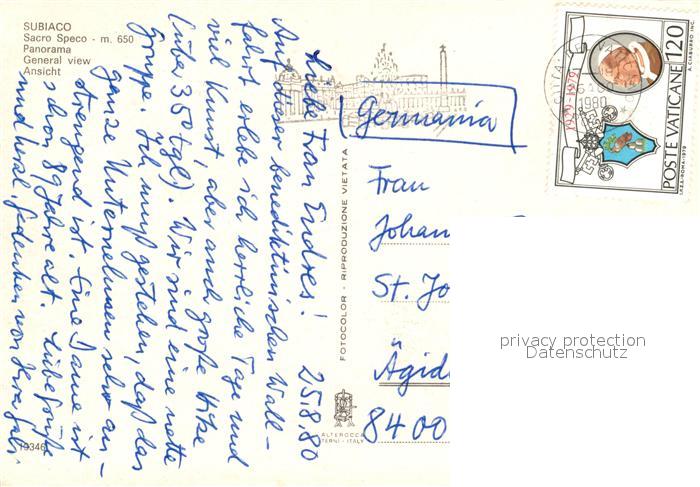 SUBIACO
Sacro Speco - m. 650
Panorama
General view
Ansicht
Liebe Frau Endres! 25.8.80
Auf dieser benediktinischen Wall-
fahrt erlebe ich herrliche Tage und
viel Kunst, aber auch große Hitze
(über 35° tgl.). Wir sind eine nette
Gruppe. Ich muß gestehen, daß das
ganze Unternehmen sehr an-
strengend ist. Eine Dame ist
schon 89 Jahre alt. Liebe Grüße
und Gedenken von
19346
FOTOCOLOR - RIPRODUZIONE VIETATA
ALTEROCCA
TERNI - ITALY
Germania
Frau
Johan
St. Jo
Ägid
8400
1929-1979
POSTE VATICANE 120
I.P.Z.S.-ROMA-1979
A. CIABURRO INC.
1980
privacy protection
Datenschutz